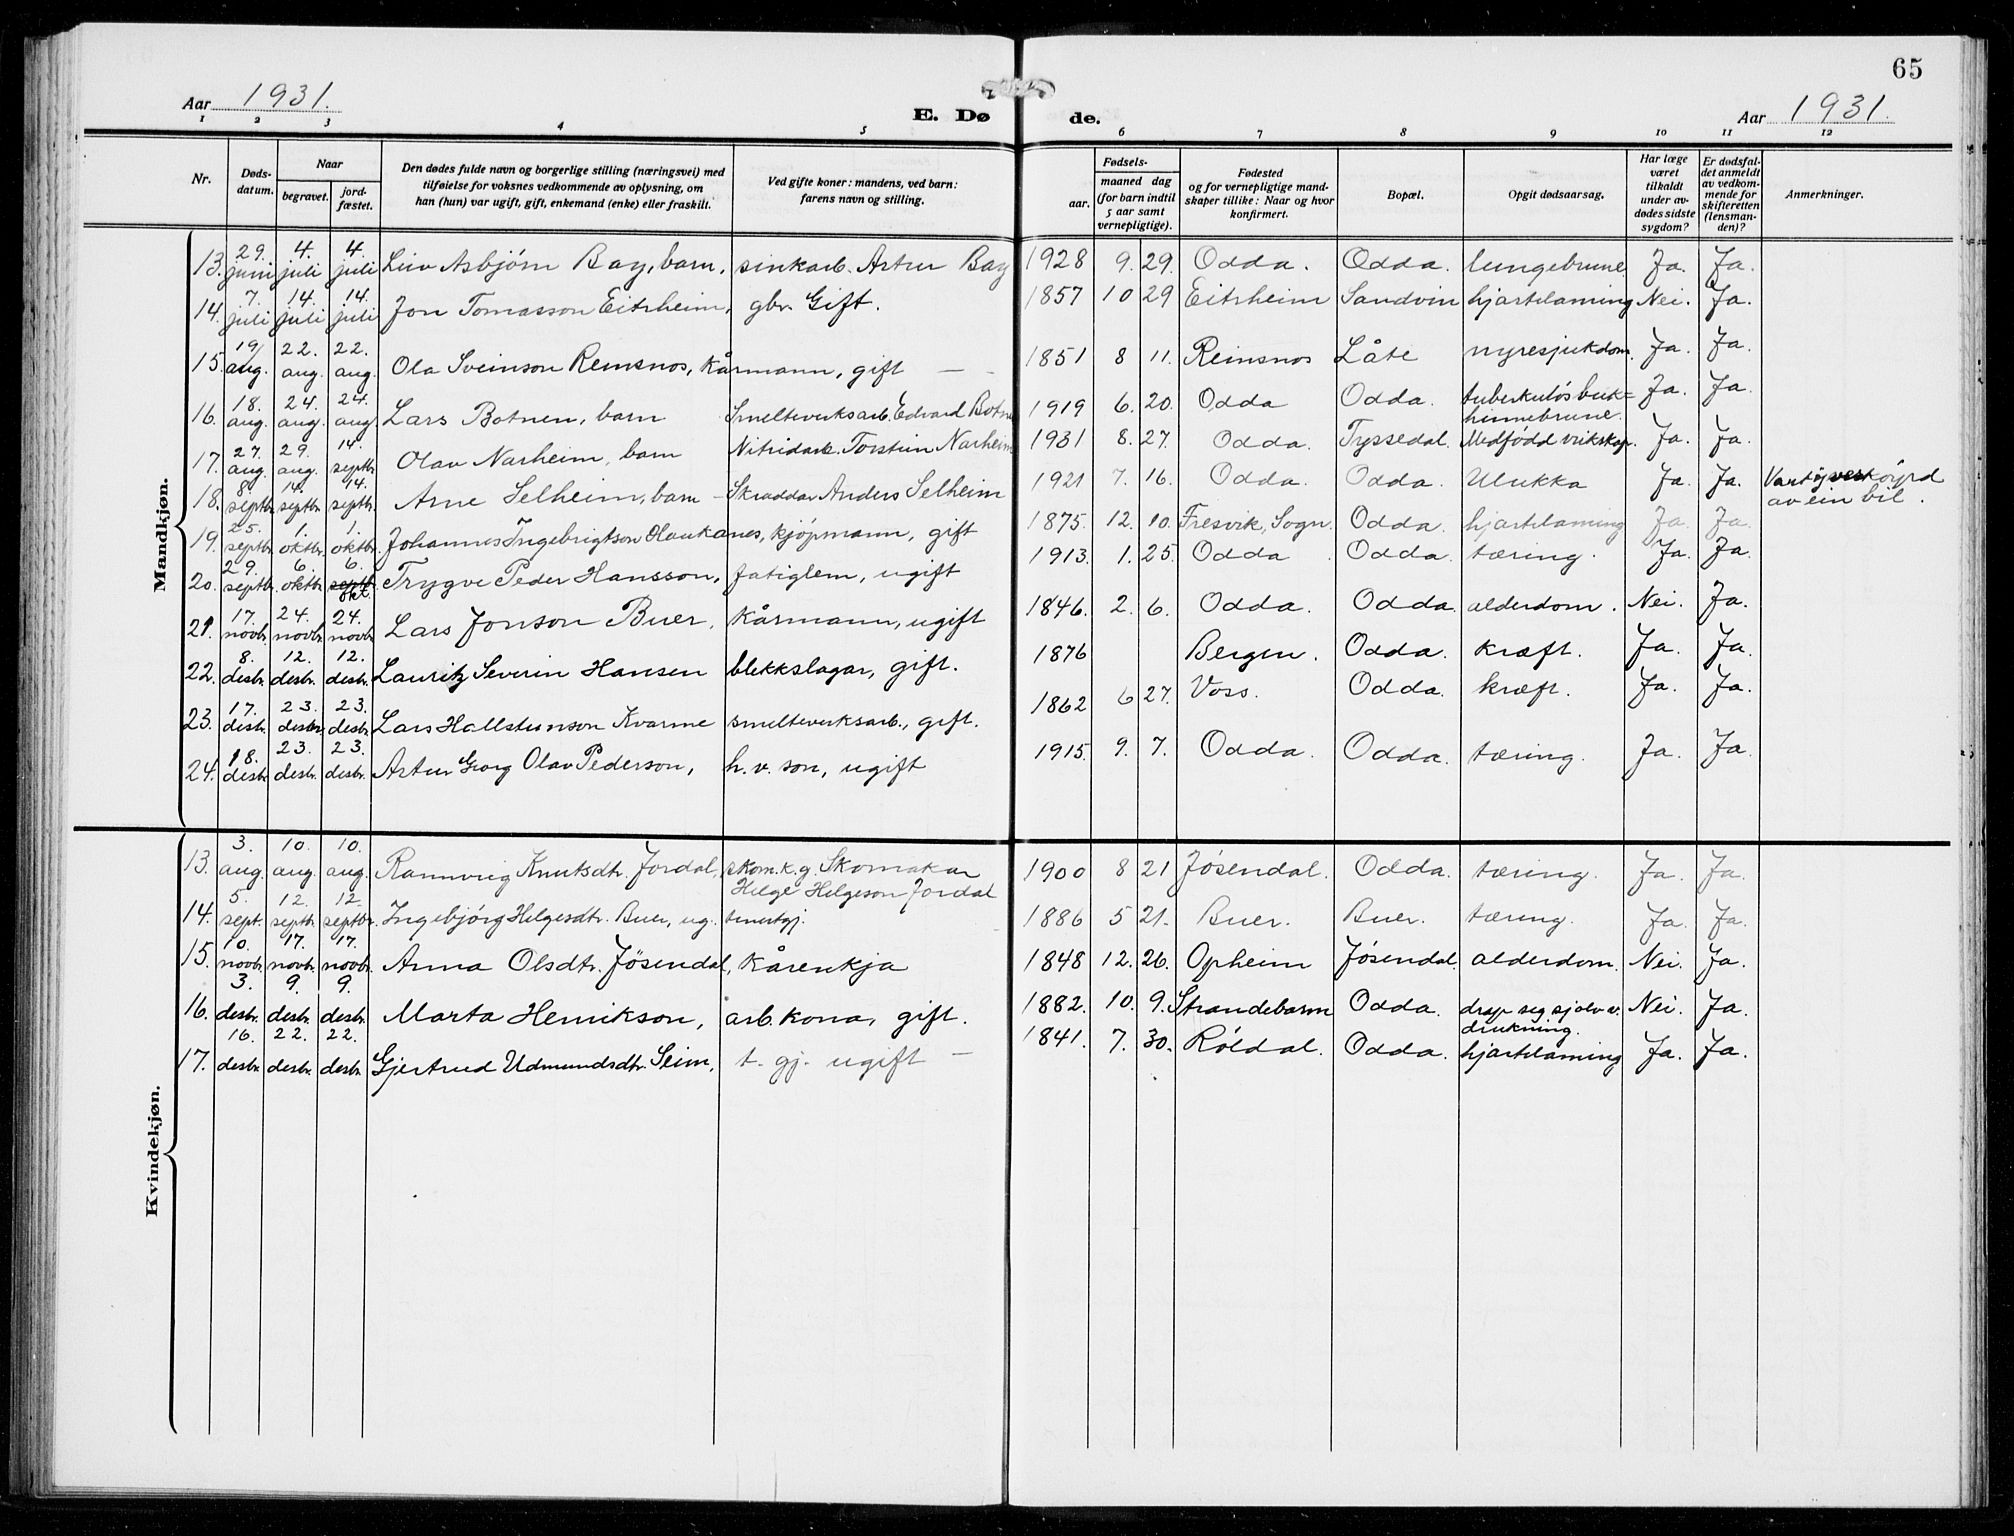 65
Aar 1931. E. Dø de. Aar 1931.
1 2 3 4 5 6 7 8 9 10 11 12
Nr. | Døds-datum. | Naar begravet. | jord-fæstet. | Den dødes fulde navn og borgerlige stilling (næringsvei) med tilføielse for voksnes vedkommende av oplysning, om han (hun) var ugift, gift, enkemand (enke) eller fraskilt. | Ved gifte koner: mandens, ved barn: farens navn og stilling. | Fødsels- aar. | maaned dag (for barn indtil 5 aar samt vernepligtige). | Fødested og for vernepligtige mandskaper tillike: Naar og hvor konfirmert. | Bopæl. | Opgit dødsaarsag. | Har læge været tilkaldt under avdødes sidste sygdom? | Er dødsfaldet anmeldt av vedkommende for skifteretten (lensmanden)? | Anmerkninger.
Mandkjøn.
13. | 29. juni | 4. juli | 4. juli | Leiv Asbjörn Bay, barn, | sinkarb. Artur Bay | 1928 | 9. | 29. | Odda. | Odda. | lungebrune | Ja. | Ja.
14. | 7. juli | 14. juli | 14. juli | Jon Tomasson Eitrheim, | gbr. Gift. | 1857 | 10 | 29 | Eitrheim | Sandvin | hjartelaming | Nei. | Ja.
15. | 19. aug. | 22. aug. | 22. aug. | Ola Sveinson Reinsnos, kårmann, gift — | 1851 | 8 | 11. | Reinsnos | Låte | nyresjukdom. | Ja. | Ja.
16. | 18. aug. | 24. aug. | 24. aug. | Lars Botnen, barn | Smelteverksarb. Edvard Botnen | 1919 | 6. | 20. | Odda | Odda. | tuberkulös buk-hinnebrune. | Ja. | Ja.
17. | 27. aug. | 29. aug. | 14. septbr. | Olav Narheim, barn | Nitridarb. Torstein Narheim | 1931 | 8. | 27. | Odda. | Tyssedal. | Medfödd veikskap. | Ja. | Ja.
18. | 8. septbr. | 14. septbr. | 14. septbr. | Arne Selheim, barn – | Skraddar Anders Selheim | 1921 | 7. | 16. | Odda. | Odda. | Ulukka | Ja. | Ja. | Vart yverköyrd av ein bil.
19. | 25. septbr. | 1. oktbr. | 1. oktbr. | Johannes Ingebrigtson Haukanes, kjöpmann, gift | 1875. | 12. | 10. | Fresvik, Sogn. | Odda. | hjartelaming | Ja. | Ja.
20. | 29. septbr. | 6. oktbr. | 6. septb. okt. | Trygve Peder Hansson, | fatiglem, ugift | 1913. | 1. | 25. | Odda | Odda. | tæring. | Ja. | Ja.
21. | 17. novbr. | 24. novbr. | 24. novbr. | Lars Jonson Buer, | kårmann, ugift | 1846. | 2. | 6. | Odda. | Odda. | alderdom. | Nei. | Ja.
22. | 8. desbr. | 12. desbr. | 12. desbr. | Lauritz Severin Hansen | blekkslagar, gift. | 1876 | Bergen. | Odda. | kræft. | Ja. | Ja.
23. | 17. desbr. | 23. desbr. | 23. desbr. | Lars Hallsteinson Kvarme | smelteverksarb., gift. | 1862 | 6 | 27. | Voss. | Odda. | kræft. | Ja. | Ja.
24. | 18. desbr. | 23. desbr. | 23. desbr. | Artur Georg Olav Pederson, | h. v. son, ugift | 1915. | 9. | 7. | Odda. | Odda. | tæring. | Ja. | Ja.
Kvindekjøn.
13. | 3. aug. | 10. aug. | 10. aug. | Rannveig Knutsdtr. Jordal, | skom.k. g. Skomakar Helge Helgeson Jordal | 1900 | 8 | 21 | Jøsendal. | Odda. | tæring. | Ja. | Ja.
14. | 5. sept. | 12. septbr. | 12. septbr. | Ingebjörg Helgesdtr. Buer, ug. | tenestgj. | 1886 | 5 | 21. | Buer. | Buer. | tæring. | Ja. | Ja.
15. | 10. novbr. | 17. novbr. | 17. novbr. | Anna Olsdtr. Jösendal, | kårenkja | 1848 | 12. | 26. | Opheim | Jösendal. | alderdom. | Nei. | Ja.
16. | 3. desbr. | 9. desbr. | 9. desbr. | Marta Henrikson, | arb. kona, gift. | 1882. | 10. | 9. | Strandebarm | Odda. | drap seg sjölv v. drukning. | Nei. | Ja.
17. | 16. desbr. | 22. desbr. | 22. desbr. | Gjertrud Udmundsdtr. Seim, | t. gj. ugift — | 1841. | 7. | 30. | Röldal. | Odda. | hjartelaming | Ja. | Ja.